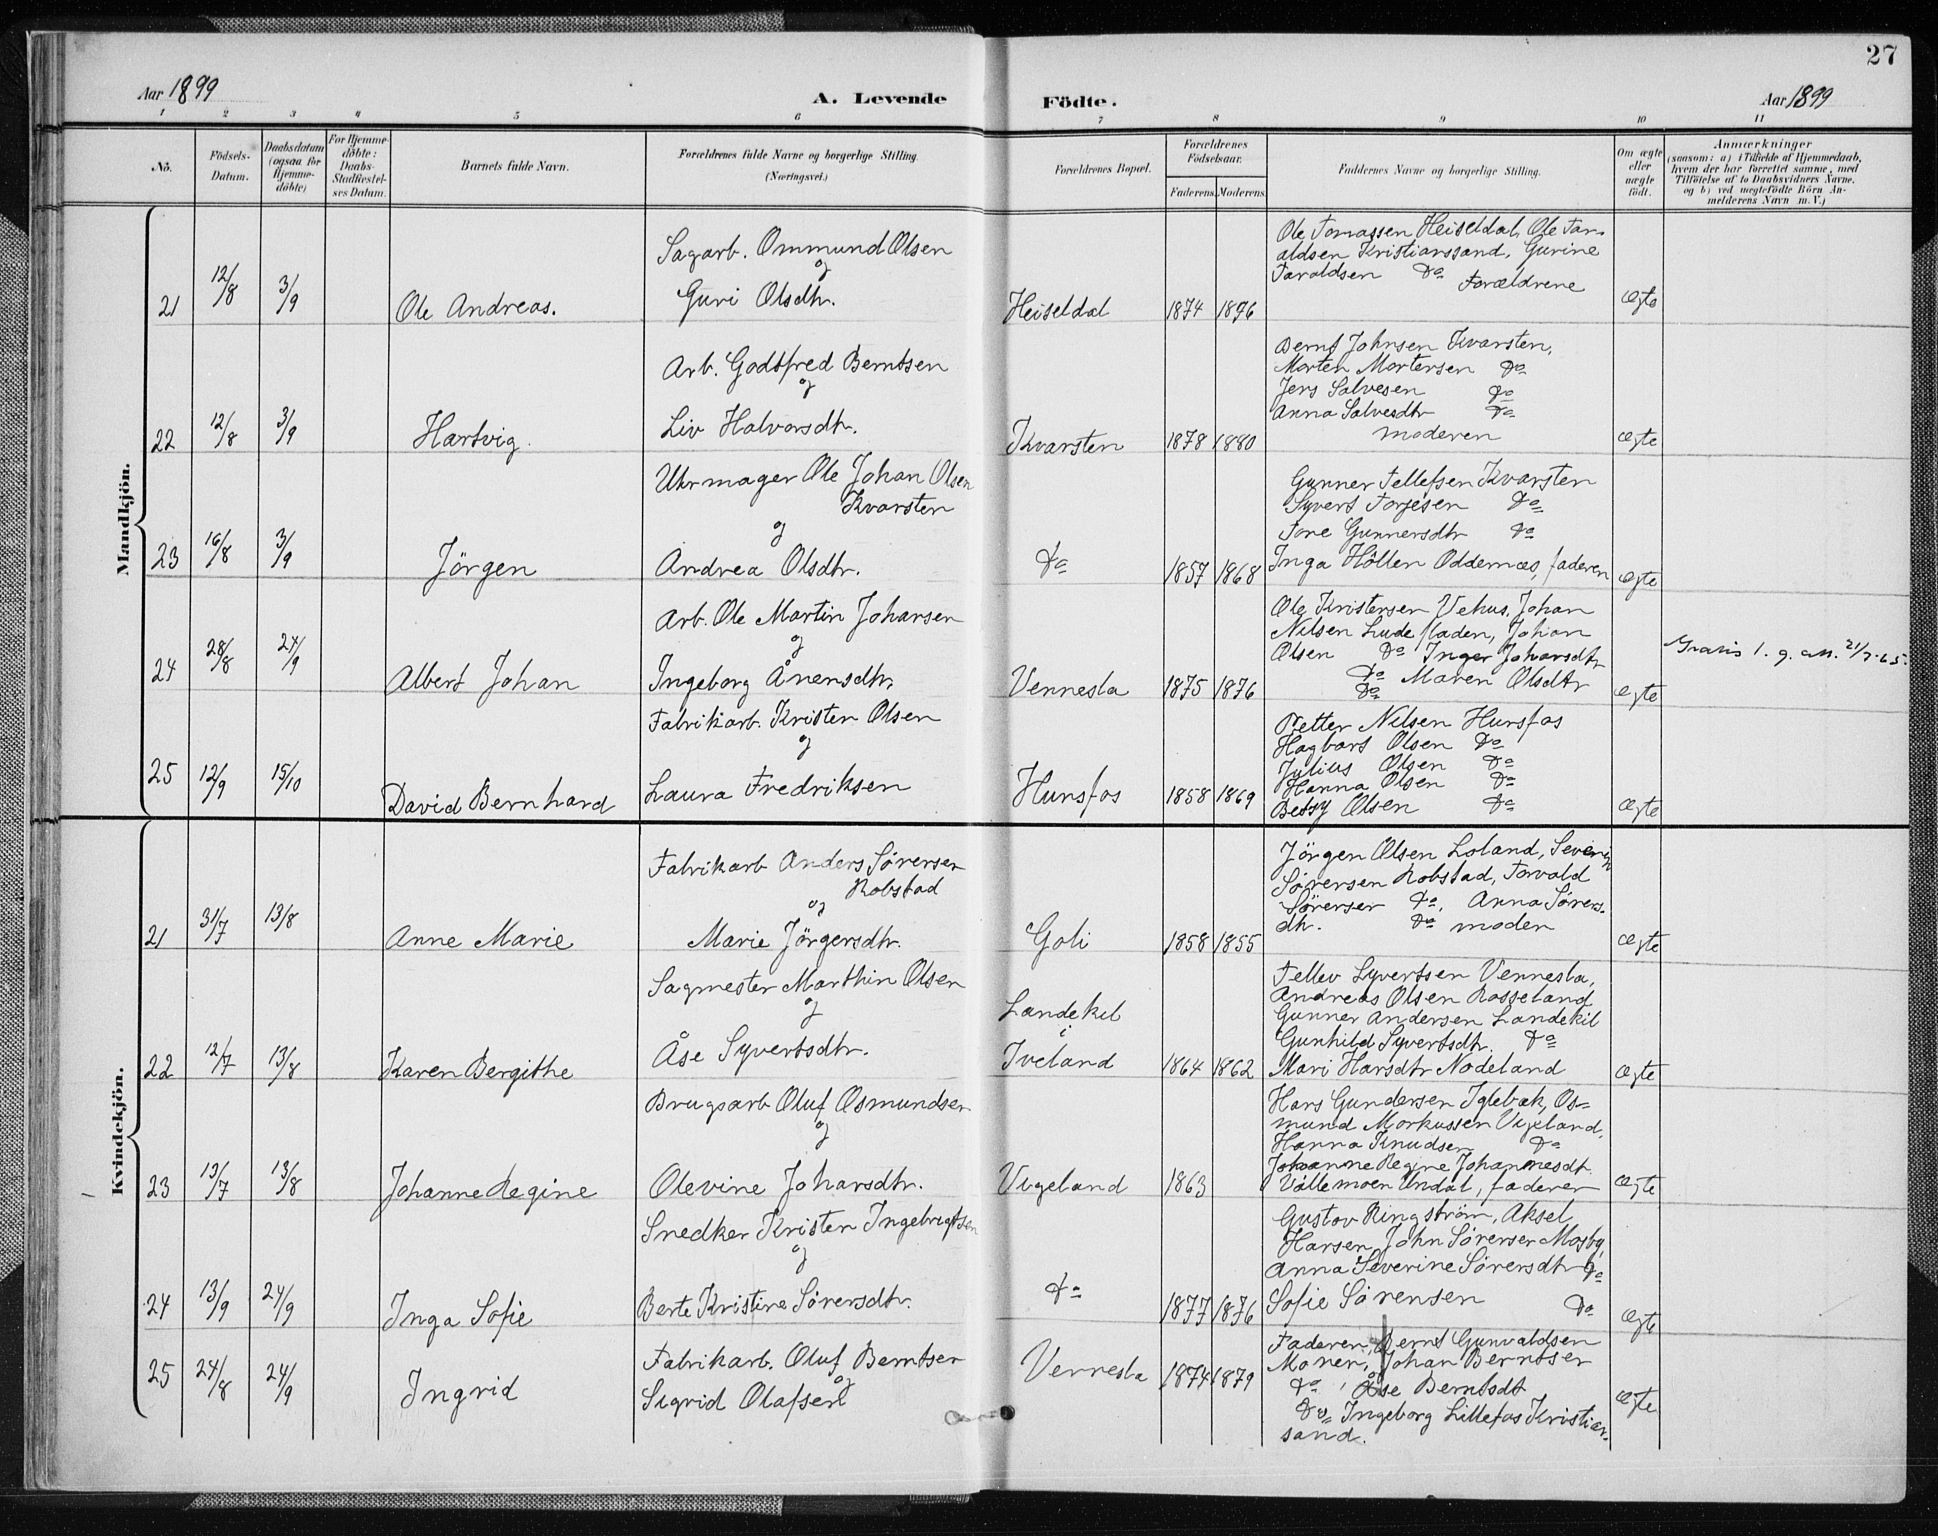 27
Aar 1899
A. Levende Födte.
Aar 1899
1 2 3 4 5 6 7 8 9 10 11
No.
Födsels-Datum.
Daabsdatum (ogsaa for Hjemme-döbte)
For Hjemme-döbte: Daabs-Stadfæstel-ses Datum.
Barnets fulde Navn.
Forældrenes fulde Navne og borgerlige Stilling. (Næringsvei.)
Forældrenes Bopæl.
Forældrenes Födselsaar.
Faderens. Moderens.
Faddernes Navne og borgerlige Stilling.
Om ægte eller uægte födt.
Anmærkninger
(saasom: a) i Tilfælde af Hjemmedaab,
hvem der har forrettet samme, med
Tilföielse af to Daabsvidners Navne,
og b) ved uægtefödte Börn An-
melderens Navn m. V.)
Mandkjön.
21 12/8 3/9 Ole Andreas.
Sagarb. Ommund Olsen
og
Guri Olsdtr.
Heiseldal 1874 1876
Ole Tomassen Heiseldal, Ole Tar-
aldsen Kristianssand, Gurine
Taraldsen do Forældrene
Ægte
22 12/8 3/9 Hartvig.
Arb. Godtfred Berntsen
og
Liv Halvorsdtr.
Kvarsten 1878 1880
Bernt Johnsen Kvarsten,
Morten Mortensen do
Jens Salvesen do
Anna Salvesdtr do
moderen
Ægte
23 16/8 3/9 Jörgen
Uhrmager Ole Johan Olsen
Kvarsten
og
Andrea Olsdtr.
do 1857 1868
Gunner Tellefsen Kvarsten
Syvert Torjesen do
Tone Gunnersdtr do
Inga Höllen Oddernæs, faderen
Ægte
24 28/8 24/9 Albert Johan
Arb. Ole Martin Johansen
og
Ingeborg Ånensdtr.
Vennesla 1875 1876
Ole Kristensen Vehus, Johan
Nilsen Lude fladen, Johan
Olsen do Inger Johansdtr
do Maren Olsdtr
do
Ægte
Gratis 1. g. att. 21/7-65.
25 12/9 15/10 David Bernhard
Fabrikarb. Kristen Olsen
og
Laura Fredriksen
Hunsfos 1858 1869
Petter Nilsen Hunsfos
Hagbart Olsen do
Julius Olsen do
Hanna Olsen do
Betsy Olsen do
Ægte
Kvindekjön.
21 31/7 13/8 Anne Marie
Fabrikarb Anders Sörensen
Robstad
og
Marie Jörgensdtr.
Goli 1858 1855
Jörgen Olsen Loland, Severin
Sörensen Robstad, Torvald
Sörensen do, Anna Sörens-
dtr. do moder
Ægte
22 12/7 13/8 Karen Bergithe
Sagmester Marthin Olsen
og
Åse Syvertsdtr.
Landekil
i
Iveland 1864 1862
Tellev Syvertsen Vennesla,
Andreas Olsen Rosseland
Gunner Andersen Landekil
Gunhild Syvertsdtr. do
Mari Hansdtr Nodeland
Ægte
23 19/7 13/8 Johanne Regine
Brugsarb Oluf Osmundsen
og
Olevine Johansdtr.
Vigeland 1863
Hans Gundersen Iglebæk, Os-
mund Morkussen Vigeland,
Hanna Knudsen do
Johanne Regine Johannesdt.
Vallemoen Undal, faderen
Ægte
24 13/9 24/9 Inga Sofie
Snedker Kristen Ingebrigtsen
og
Berte Kristine Sörensdtr.
do 1877 1876
Gustov Ringström, Aksel
Hansen, John Sörensen Mosby,
Anna Severine Sörensdtr do
Sofie Sörensen do
Ægte
25 24/8 24/9 Ingrid
Fabrikarb. Oluf Berntsen
og
Sigrid Olafsen
Vennesla 1874 1879
Faderen, Bernt Gunvaldsen
Moner, Johan Berntsen
do, Åse Berntsdt
do, Ingeborg Lillefos Kristian-
sand.
Ægte